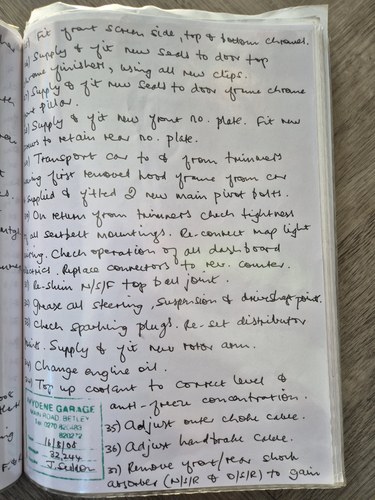 Fit front screen side, top & bottom chromes.
Supply & fit new seals to door top
chrome finishers, using all new clips.
Supply & fit new seals to door frame chrome
pillar.
Supply & fit new front no. plate. Fit new
screws to retain rear no. plate.
Transport car to & from trimmers
having first removed hood frame from car
supplied & fitted 2 new main pivot bolts.
On return from trimmers check tightness
all seatbelt mountings. Re-connect map light
wiring. Check operation of all dashboard
electrics. Replace connectors to rev. counter.
Re-shim N/S/F top ball joint.
Grease all steering, suspension & driveshaft points.
Check sparking plugs. Re-set distributor
points. Supply & fit new rotor arm.
Change engine oil.
Top up coolant to correct level &
anti-freeze concentration.
35) Adjust outer choke cable.
36) Adjust handbrake cable.
37) Remove front/rear shock
absorber (N/S/R & O/S/R) to gain
WYDENE GARAGE
MAIN ROAD BETLEY
Tel 0270 820820
820272
16/8/08
32,244